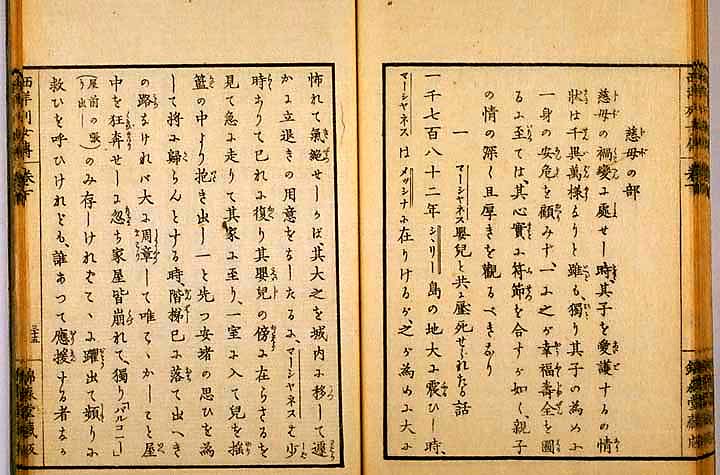 慈母の部
慈母の禍變に處せし時、其子を愛護するの情
狀は千異萬様なりと雖も、獨り其子の為めに
一身の安危を顧みず、一に之が幸福壽全を圖
るに至ては、其心實に符節を合するが如く、親子
の情の深く且厚きを觀るべきなり
一 マーシャネス嬰兒と共に壓死せられたる話
一千七百八十二年シヽリー島の地大に震ひし時、
マーシャネスはメッシナに在りけるが之が為めに大に
怖れて氣絶せしかば、其夫之を城内に移して遽
かに立退きの用意をなしたるに、マーシャネスは少
時ありて已れに復り其嬰兒の傍に在らざるを
見て急に走りて其家に至り、一室に入て兒を搖
籃の中より抱き出し一と先つ安堵の思ひを為
して將に歸らんとする時、階梯已に落て出べき
の路なければ大に周章して唯こゝかしこと屋
中を狂奔せしに忽ち家屋皆崩れて、獨り「バルコニー」
(屋前の張り出し)のみ存しけれバこゝに躍出て頻りに
救ひを呼ひけれども、誰あつて應援する者なか
西洋列女傳 卷下
三十五
錦森堂藏版